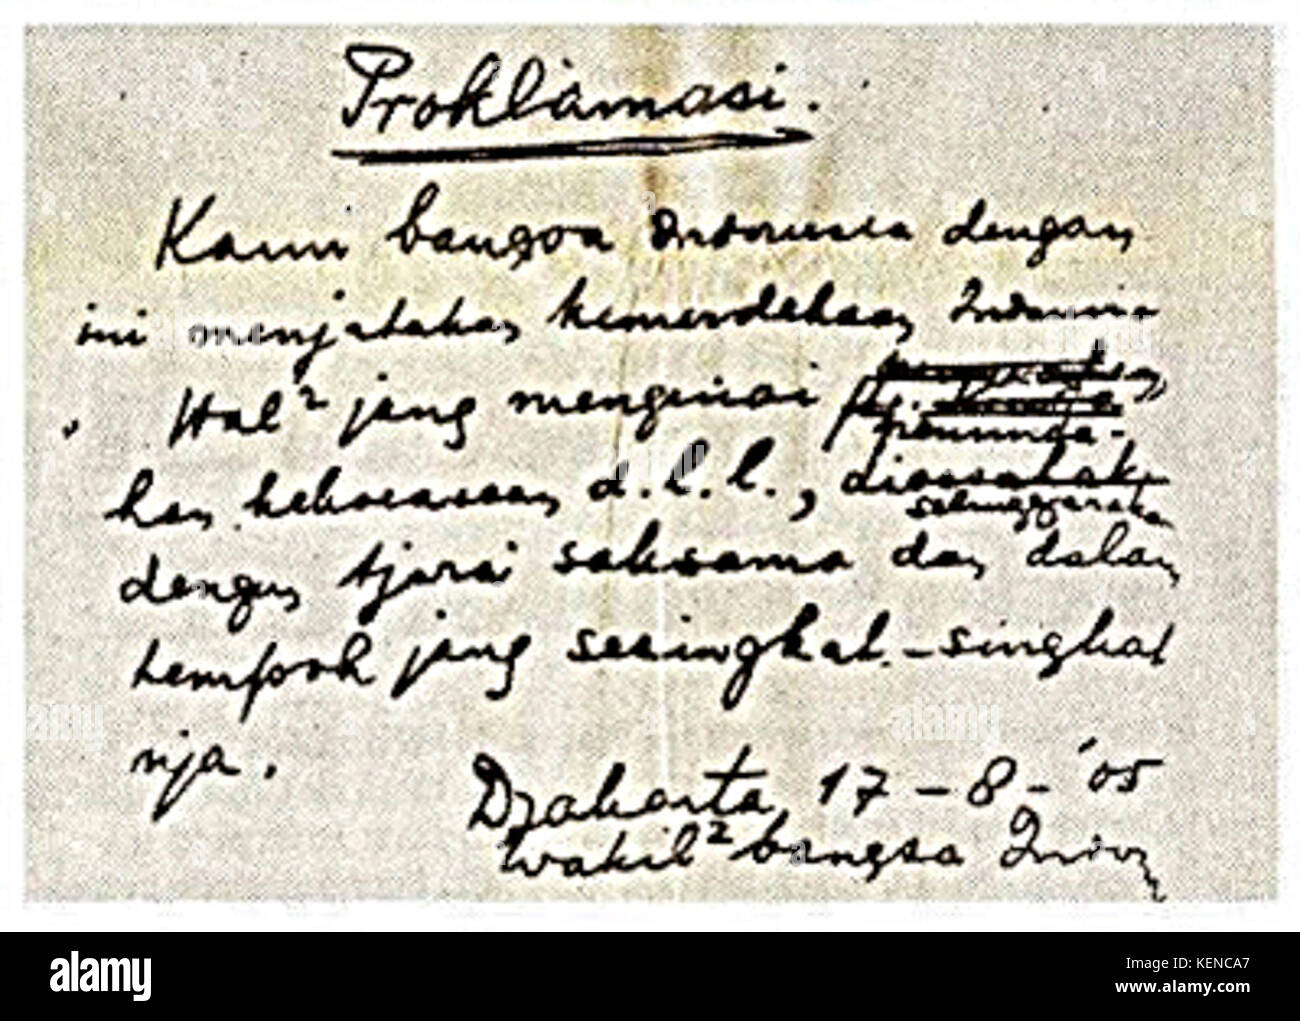 Proklamasi.
Kami bangsa Indonesia dengan
ini menjatakan kemerdekaan Indonesia
. Hal² jang mengenai peminda-
han kekoeasaan d.l.l., dioesahak
selenggarakan
dengan tjara saksama dan dalam
tempoh jang sesingkat-singkat
nja.
Djakarta, 17-8-'05
Wakil² bangsa Indon
alamy
Image ID: KENCA7
www.alamy.com